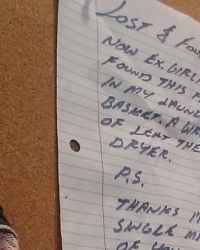 LOST & FOU
NOW EX-GIRL
FOUND THIS P
IN MY LAUN
BASKET. A GIR
OF LEFT THE
DRYER.
P.S.
THANKS I'
SINGLE M
OF YOU